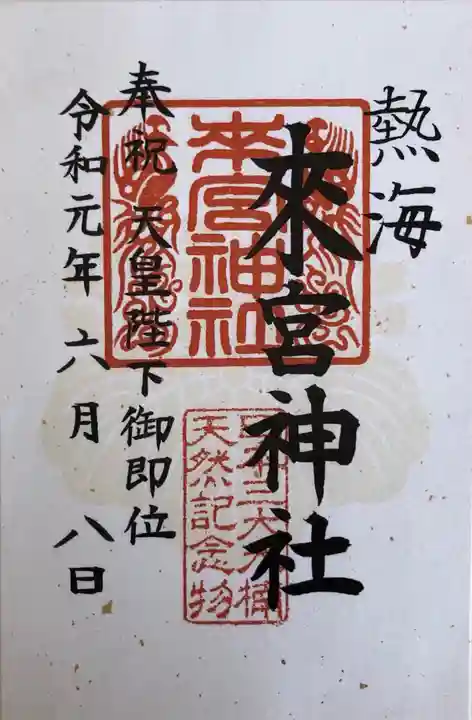 熱海
來宮神社
奉祝 天皇陛下御即位
令和元年 六月 八日
来宮神社
日本三大大楠
天然記念物